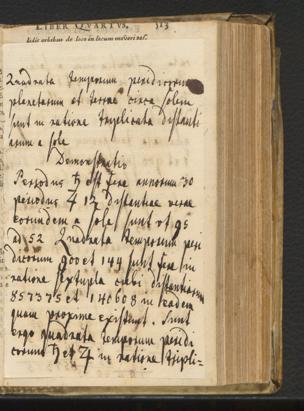 LIBER QVARTVS. 323
Quadrata temporum periodicorum
planetarum et terrae circa Solem
sunt in ratione triplicata distanti
arum a sole
Demonstratio
Periodus ♄ est fere annorum 30
periodus ♃ 12 distantiae verae
eorundem a sole sunt ut 95
ad 52 Quadrata temporum peri
dicorum 900 et 144 sunt fere in
ratione cubi distantiarum
857375 et 140608 in eadem
quam proxime existunt. Sunt
ergo quadrata temporum periodi
corum ♄ et ♃ in ratione tripli-